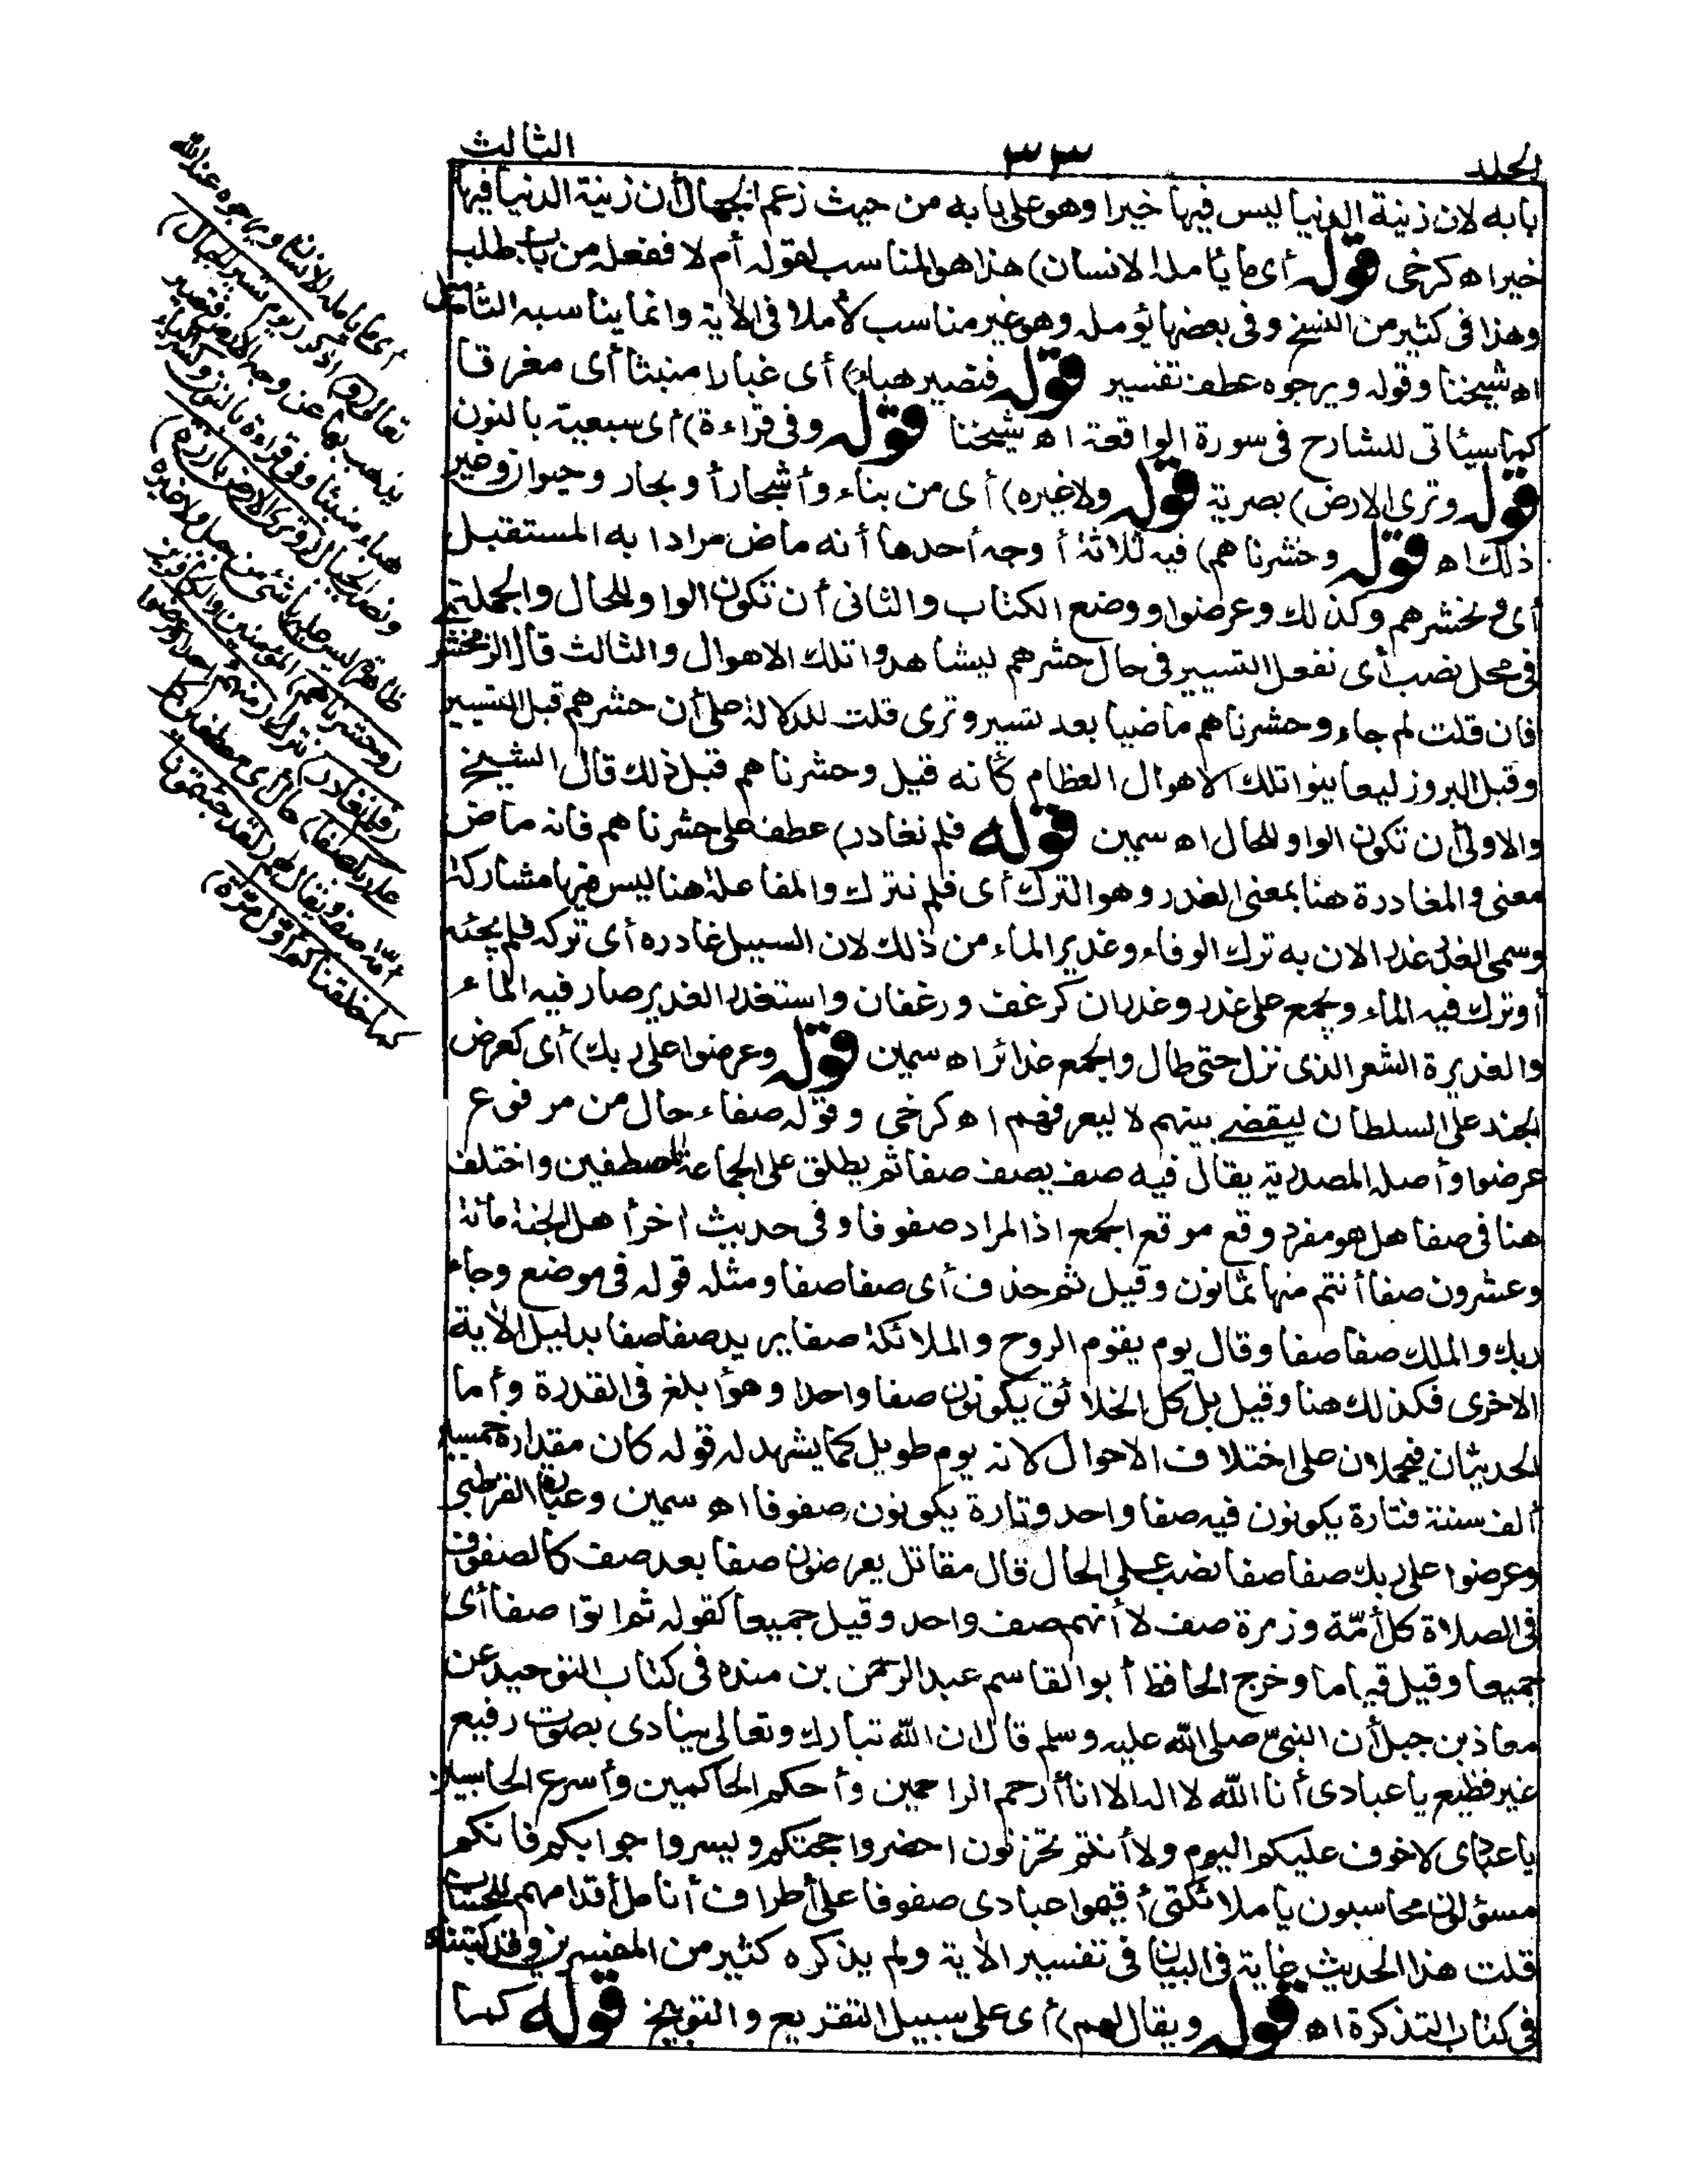 الجلد ٣٣ الثالث
بابه لان زينة الدنيا ليس فيها خيرا وهو على بابه من حيث زعم الجهال أن زينة الدنيا فيها
خيرا اه كرخى قوله أى ما يأمله الانسان) هذا هو المناسب لقوله أملا ففعله من باب طلب
وهذا فى كثير من النسخ وفى بعضها يؤمله وهو غير مناسب لأملا فى الآية وانما يناسبه التأميل
اه شيخنا وقوله ويرجوه عطف تفسير قوله فتصير هباء) أى غبارا منبثا أى مفرقا
كما سيأتى للشارح فى سورة الواقعة اه شيخنا قوله وفى قراءة) أى سبعية بالنون
قوله وترى الارض) بصرية قوله ولاغيره) أى من بناء وأشجار أو بحار وحيوان وغير
ذلك اه قوله وحشرناهم) فيه ثلاثة أوجه أحدها أنه ماض مرادا به المستقبل
أى ونحشرهم وكذلك وعرضوا ووضع الكتاب والثانى أن تكون الواو للحال والجملة
فى محل نصب أى نفعل التسيير فى حال حشرهم ليشاهدوا تلك الاهوال والثالث قال الزمخشرى
فان قلت لم جاء وحشرناهم ماضيا بعد نسير وترى قلت للدلالة على أن حشرهم قبل التسيير
وقبل البروز ليعاينوا تلك الاهوال العظام كأنه قيل وحشرناهم قبل ذلك قال الشيخ
والاولى أن تكون الواو للحال اه سمين قوله فلم نغادر) عطف على حشرناهم فانه ماض
معنى والمغادرة هنا بمعنى الغدر وهو الترك أى فلم نترك والمفاعلة هنا ليس فيها مشاركة
وسمى الغدر غدرا لان به ترك الوفاء وغدير الماء من ذلك لان السيل غادره أى تركه فلم يجئه
أو ترك فيه الماء ويجمع على غدر وغدران كرغف ورغفان واستغدر الغدير صار فيه الماء
والغديرة الشعر الذى نزل حتى طال والجمع غدائر اه سمين قوله وعرضوا على ربك) أى كعرض
الجند على السلطان ليقضى بينهم لا ليعرفهم اه كرخى وقوله صفاء حال من مرفوع
عرضوا وأصله المصدرية يقال فيه صف يصف صفا ثم يطلق على الجماعة المصطفين واختلف
هنا فى صفا هل هو مفرد وقع موقع الجمع اذ المراد صفوفا وفى حديث اخر أهل الجنة مائة
وعشرون صفا أنتم منها ثمانون وقيل ثم حذف أى صفا صفا ومثله قوله فى موضع وجاء
ربك والملك صفا صفا وقال يوم يقوم الروح والملائكة صفا يريد صفا صفا بدليل الآية
الاخرى فكذلك هنا وقيل بل كل الخلائق يكونون صفا واحدا وهو أبلغ فى القدرة وأما
الحديثان فيحملان على اختلاف الاحوال لانه يوم طويل كما يشهد له قوله كان مقداره خمسين
ألف سنة فتارة يكونون فيه صفا واحد وتارة يكونون صفوفا اه سمين وعبارة القرطبى
وعرضوا على ربك صفا صفا نصب على الحال قال مقاتل يعرضون صفا بعد صف كالصفوف
فى الصلاة كل أمّة وزمرة صف لا أنهم صف واحد وقيل جميعا كقوله ثم ائتوا صفا أى
جميعا وقيل قياما وخرج الحافظ أبو القاسم عبد الرحمن بن منده فى كتاب التوحيد عن
معاذ بن جبل أن النبىّ صلى الله عليه وسلم قال ان الله تبارك وتعالى ينادى بصوت رفيع
غير فظيع يا عبادى أنا الله لا اله الا انا أرحم الراحمين وأحكم الحاكمين وأسرع الحاسبين
يا عبادى لا خوف عليكم اليوم ولا أنتم تحزنون احضروا حجتكم ويسروا جوابكم فانكم
مسؤلون محاسبون يا ملائكتى أقيموا عبادى صفوفا على أطراف أنامل أقدامهم للحساب
قلت هذا الحديث غاية فى البيان فى تفسير الآية ولم يذكره كثير من المفسرين وقد كتبناه
فى كتاب التذكرة اه قوله ويقال لهم) أى على سبيل التقريع والتوبيخ قوله كما
أى ما يأمله الانسان ويرجوه عند الله
تعالى (و) اذكر (يوم نسير الجبال)
يذهب بها عن وجه الارض فتصير
هباء منبثا وفى قراءة بالنون وكسر الياء
ونصب الجبال (وترى الارض بارزة)
ظاهرة ليس عليها شئ من جبل ولا غيره
(وحشرناهم) المؤمنين والكافرين
(فلم نغادر) نترك (منهم احدا وعرضوا
على ربك صفا) حال أى مصطفين كل
أمّة صف ويقال لهم (لقد جئتمونا
كما خلقناكم أوّل مرّة)